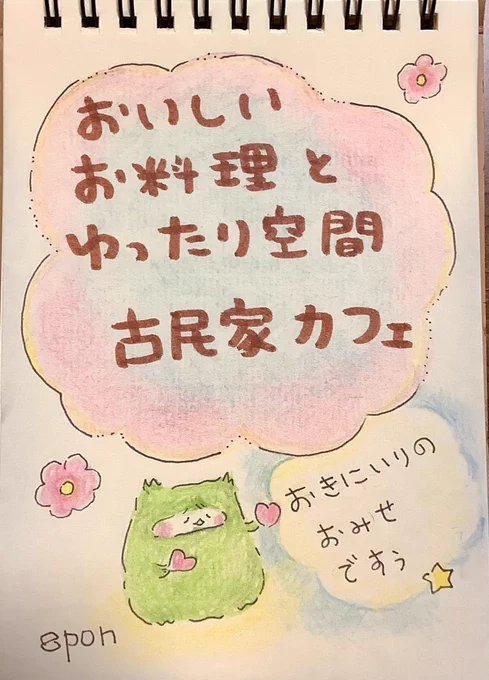 おいしい
お料理と
ゆったり空間
古民家カフェ
おきにいりの
おみせ
ですぅ
epon